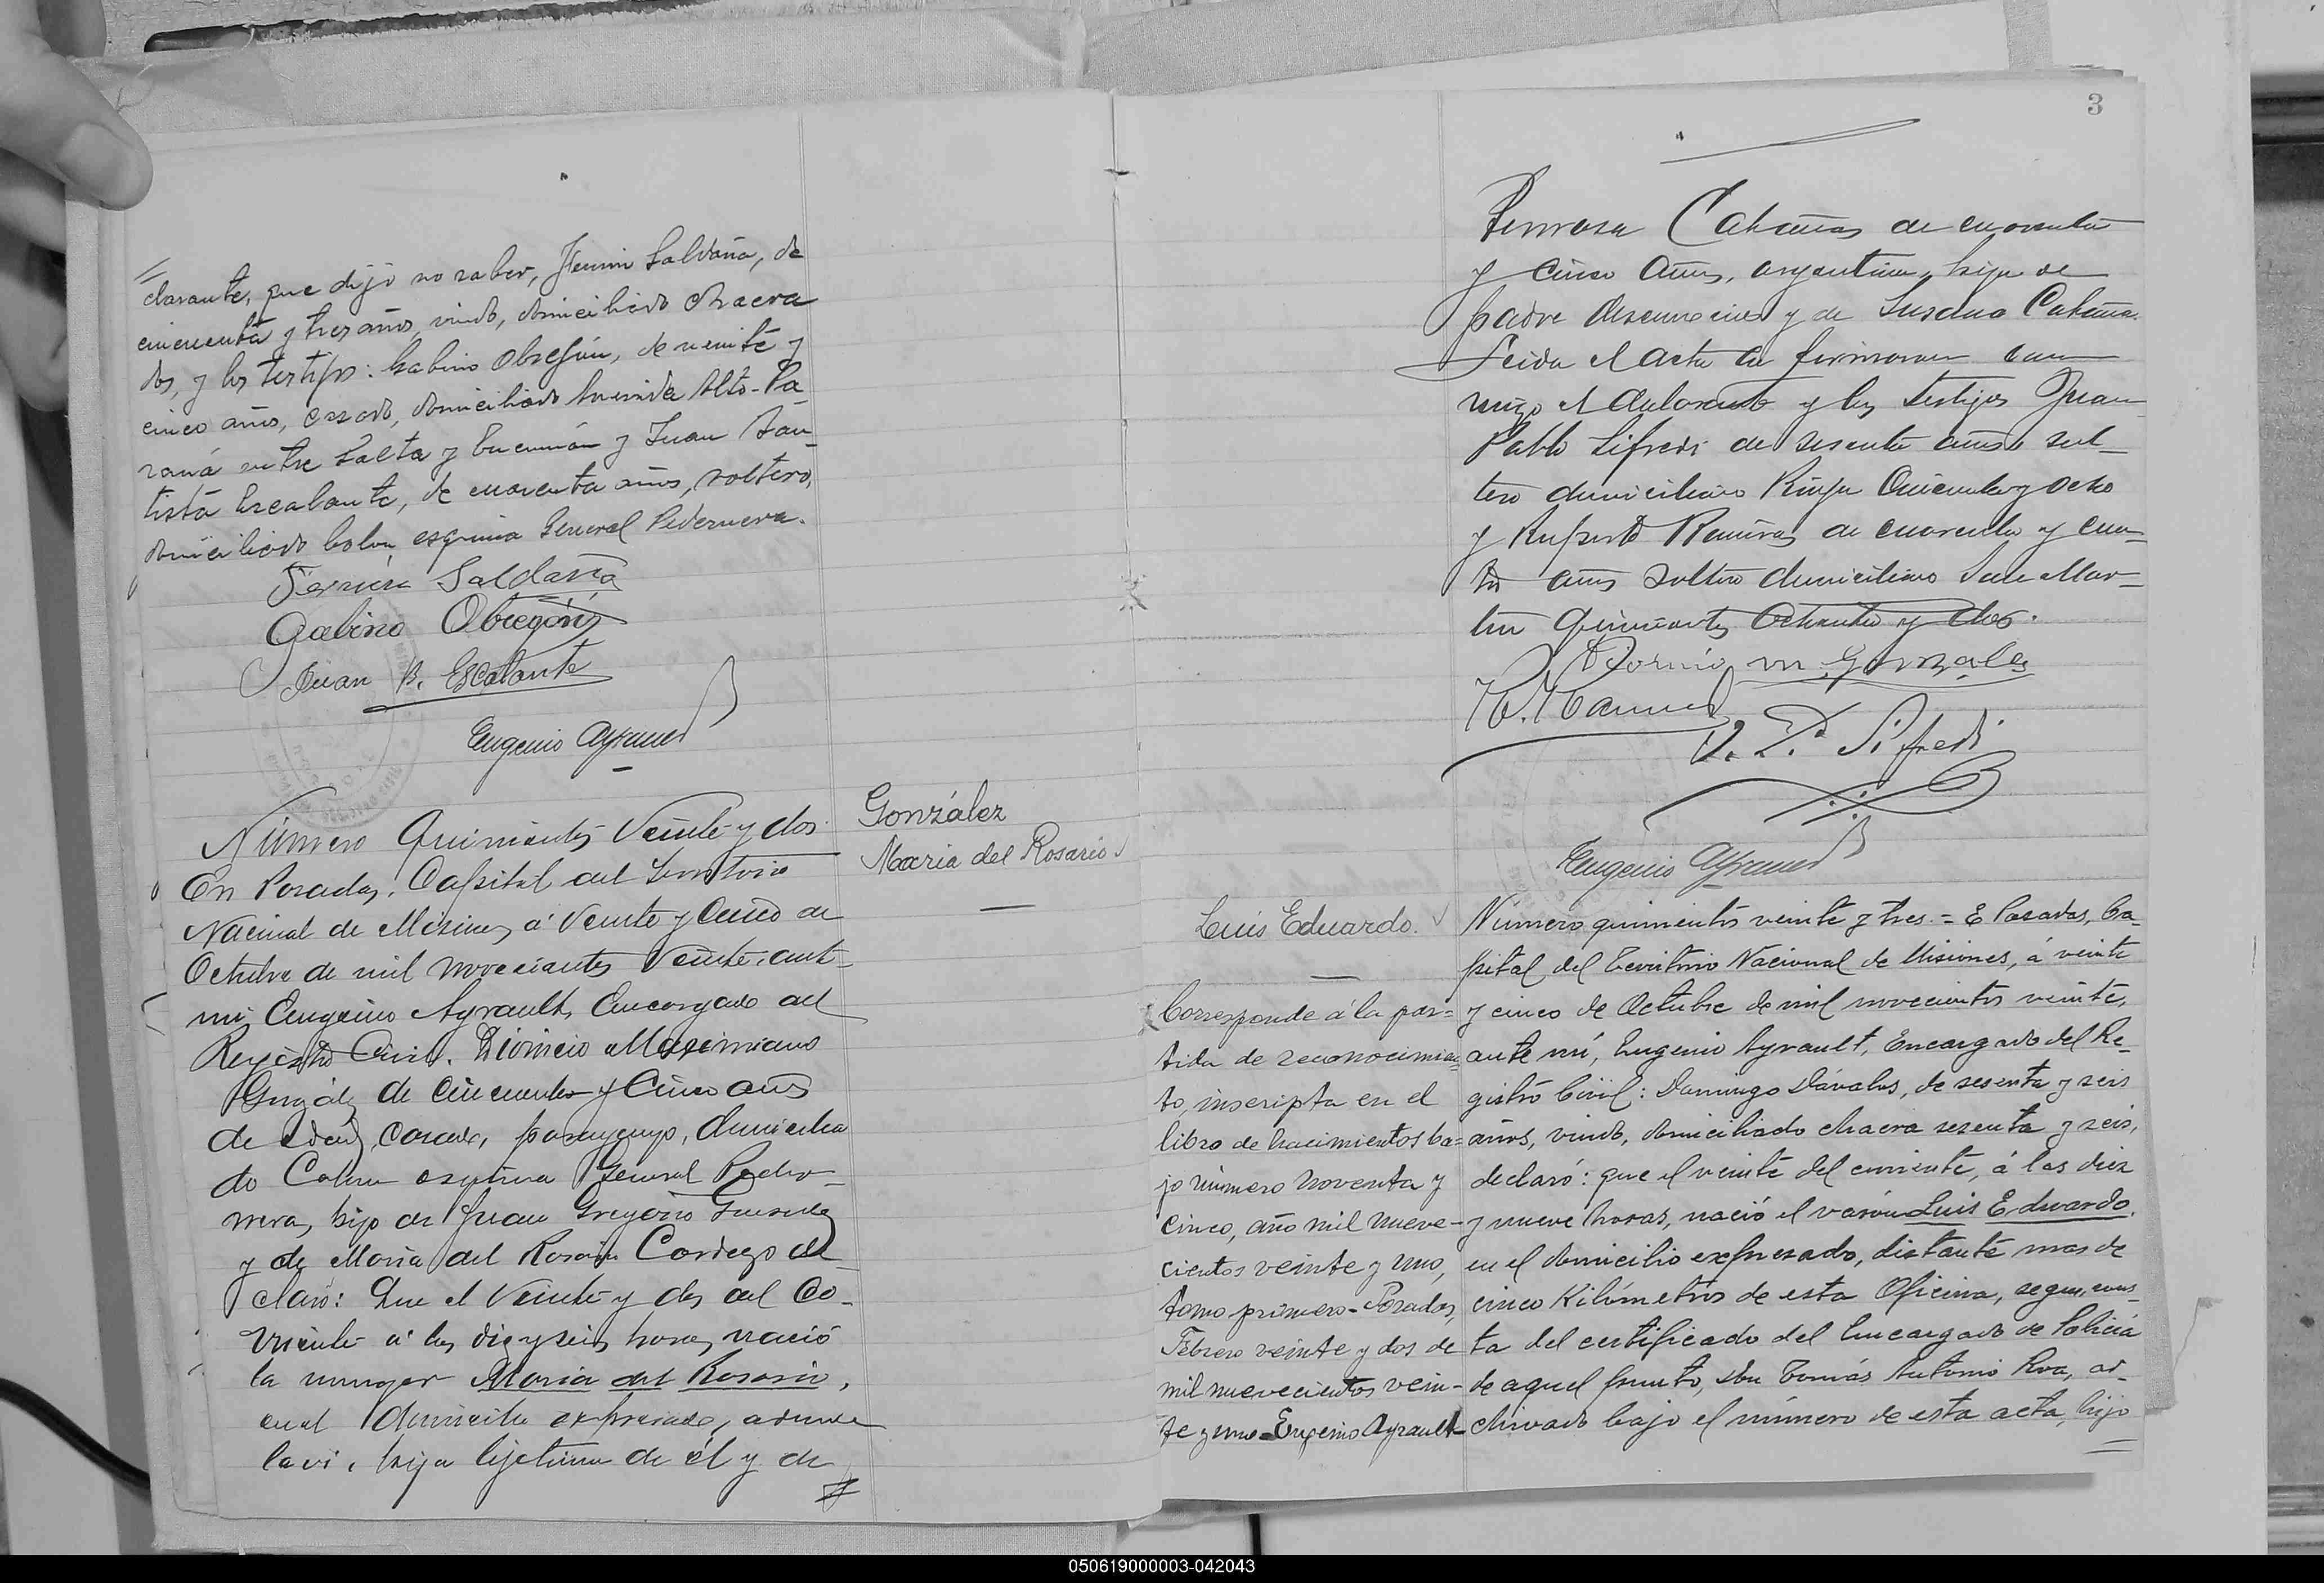 clarante, que dijo no saber, Fermin Saldaña, de
cincuenta y tres años, viudo, domiciliado chacra
dos, y los testigos: Gabino Obregón, de veinte y
cinco años, casado, domiciliado Avenida Alto-Pa-
raná entre Salta y Tucumán y Juan Bau-
tista Escalante, de cuarenta años, soltero,
domiciliado Colon esquina General Pedernera.
Fermin Saldaña
Gabino Obregón
Juan B. Escalante
Eugenio Ayrault
Número Quinientos Veinte y dos
En Posadas, Capital del Territorio
Nacional de Misiones á Veinte y Cinco de
Octubre de mil novecientos Veinte, ant-
mi Eugenio Ayrault, Encargado del
Registro Civil. Dionicio Maximiano
González de Cincuenta y Cinco años
de edad, casado, paraguayo, domicilia
do Colon esquina General Peder-
nera, hijo de Juan Gregorio
y de María del Rosario de-
claró: Que el Veinte y dos del Co-
rriente á las diez y seis horas, nació
la mujer María del Rosario,
en el domicilio expresado, adonde
la ví, hija lejitima de él y de
González
María del Rosario
3
Cabañas de cuarenta
y cinco años, argentina, hija de
padre desconocido y de Susana Cabaña.
Leida el acta la firmaron con
migo el declarante y los testigos Juan
Pablo Sifredi de sesenta años sol-
tero domiciliado Rioja Cincuenta y ocho
y Ruperto Ramírez de cuarenta y cua-
tro años soltero domiciliado San Mar-
tin Quinientos Ochenta y dos.
Dionicio M. Gonzales
J. P. Sifredi
Eugenio Ayrault
Luis Eduardo.
Corresponde á la par=
tida de reconocimien=
to, inscripta en el
libro de Nacimientos ba=
jo número noventa y
cinco, año mil nueve-
cientos veinte y uno,
tomo primero - Posadas,
Febrero veinte y dos de
mil nuevecientos vein-
te y uno - Eugenio Ayrault
Número quinientos veinte y tres. = E Posadas, Ca-
pital del Territorio Nacional de Misiones, á veinte
y cinco de Octubre de mil novecientos veinte,
ante mí, Eugenio Ayrault, Encargado del Re-
gistro Civil: Domingo Dávalos, de sesenta y seis
años, viudo, domiciliado chacra sesenta y seis,
declaró: que el veinte del corriente, á las diez
y nueve horas, nació el varón Luis Eduardo,
en el domicilio expresado, distante mas de
cinco Kilómetros de esta Oficina, segun cons-
ta del certificado del Encargado de Policía
de aquel punto, Don Tomás Antonio Roa, ar-
chivado bajo el número de esta acta, hijo
050619000003-042043